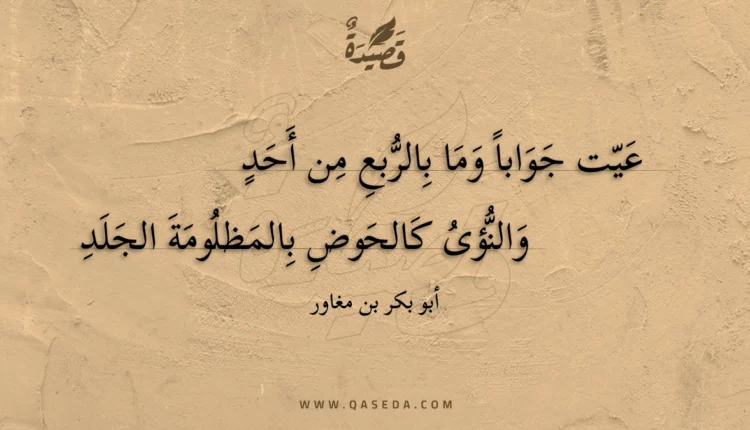 قَصِيدَةٌ
عَيّت جَوَاباً وَمَا بِالرُّبعِ مِن أَحَدٍ
وَالنُّؤىُ كَالحَوضِ بِالمَظلُومَةَ الجَلَدِ
أبو بكر بن مغاور
WWW.QASEDA.COM